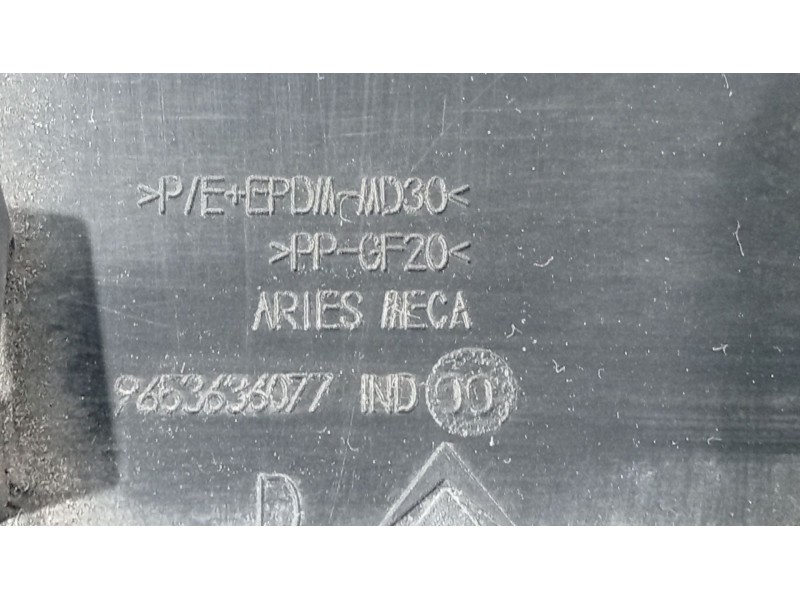 >P/E+EPDM-MD30<
>PP-GF20<
ARIES MECA
9653636077 IND 00
D